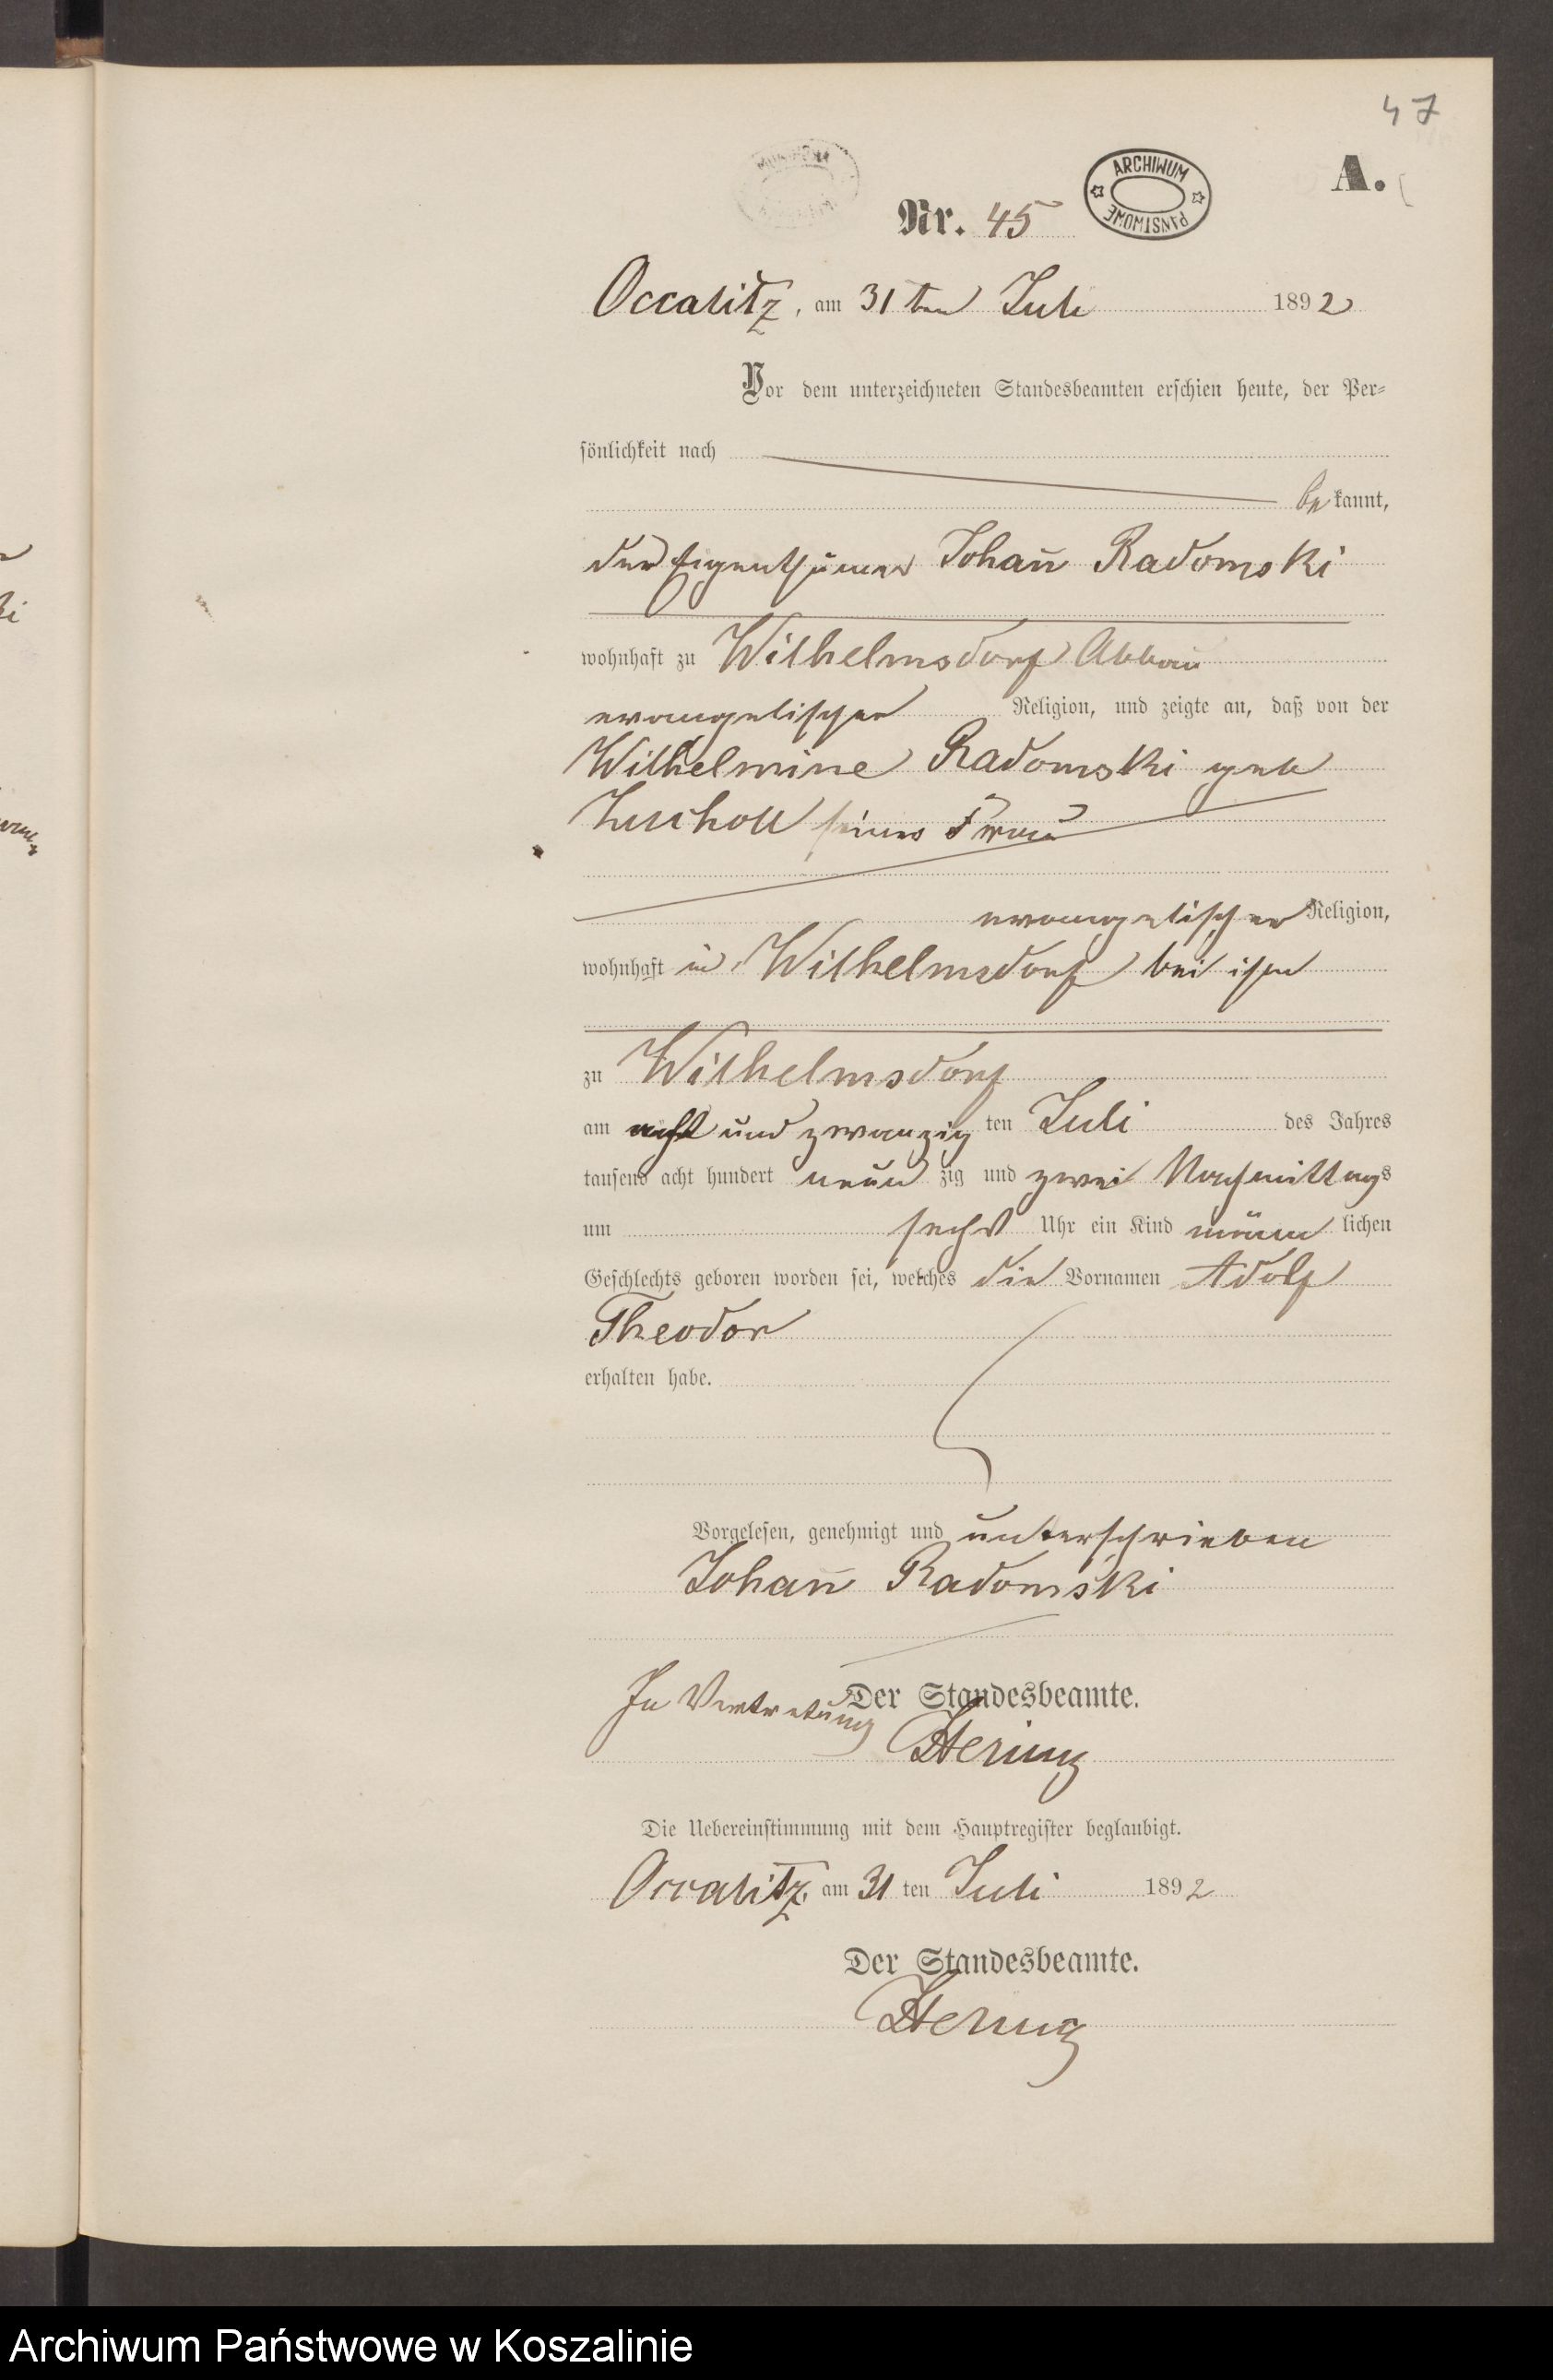 47
A.
ARCHIWUM PAŃSTWOWE
Nr. 45
Occalitz, am 31 ten Juli 1892
Vor dem unterzeichneten Standesbeamten erschien heute, der Per-
sönlichkeit nach
bekannt,
der Eigenthümer Johan̄ Radomski
wohnhaft zu Wilhelmsdorf Abbau
evangelischer Religion, und zeigte an, daß von der
Wilhelmine Radomski geb
seiner Frau
evangelischer Religion,
wohnhaft in Wilhelmsdorf bei ihm
zu Wilhelmsdorf
am acht und zwanzig ten Juli des Jahres
tausend acht hundert neun zig und zwei Nachmittags
um sechs Uhr ein Kind männ lichen
Geschlechts geboren worden sei, welches die Vornamen Adolf
Theodor
erhalten habe.
Vorgelesen, genehmigt und unterschrieben
Johan̄ Radomski
In Vertretung Der Standesbeamte.
Hering
Die Uebereinstimmung mit dem Hauptregister beglaubigt.
Occalitz, am 31 ten Juli 1892
Der Standesbeamte.
Hering
Archiwum Państwowe w Koszalinie